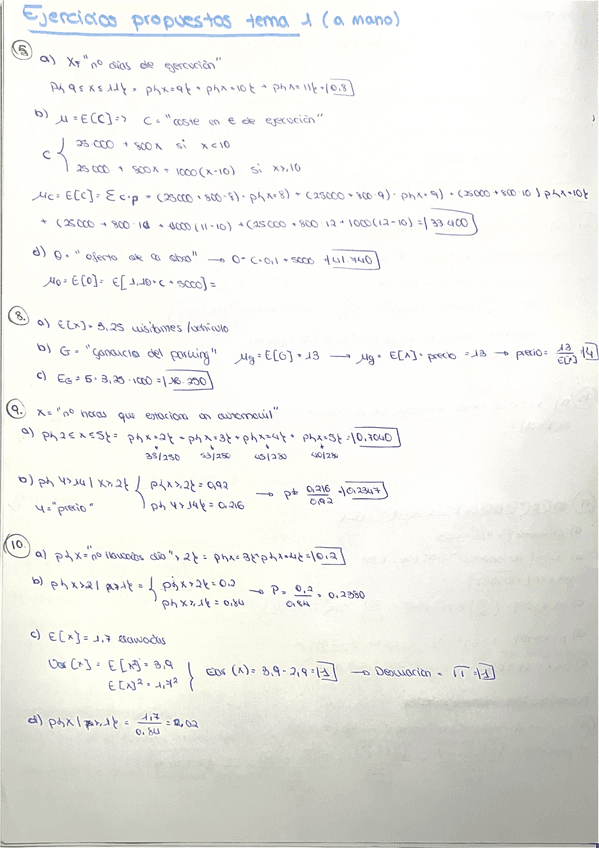 Ejercicios propuestos tema 1 (a mano)
5. a) X= "nº días de ejecución"
P{9≤x≤11} = P{x=9} + P{x=10} + P{x=11} = 0,8
b) μ = E[C] => C = "coste en € de ejecución"
C { 25.000 + 800x si x<10
25.000 + 800x + 1000(x-10) si x≥10
μc = E[C] = Σ c·p = (25000 + 800·8)·P{x=8} + (25000 + 800·9)·P{x=9} + (25000 + 800·10) P{x=10}
+ (25000 + 800·11 + 1000(11-10) + (25000 + 800·12 + 1000(12-10) = 33.400
d) O = "oferta de la obra" → O = C·0,1 + 5000 = 41.740
μo = E[O] = E[1,10·C + 5000] =
8. a) E[x] = 3,25 usuarios/vehículo
b) G = "ganancia del parking" μg = E[G] = 13 → μg = E[x]·precio = 13 → precio = 13/E[x] = 4
c) EG = 5·3,25·1000 = 16.250
9. X = "nº horas que estaciona un automóvil"
a) P{2≤x≤5} = P{x=2} + P{x=3} + P{x=4} + P{x=5} = 0,7040
38/250 53/250 45/250 40/250
b) P{Y>14 | x≥2} { P{x≥2} = 0,92
P{Y>14} = 0,216 → P = 0,216/0,92 = 0,2347
Y = "precio"
10. a) P{x="nº llamadas día" > 2} = P{x=3} + P{x=4} = 0,2
b) P{x>2 | x≥1} = { P{x>2} = 0,2
P{x≥1} = 0,84 → P = 0,2/0,84 = 0,2380
c) E[x] = 1,7 llamadas
Var[x] = E[x²] = 3,9
E[x]² = 1,7² } Var(x) = 3,9 - 2,9 = 1 → Desviación = √1 = 1
d) P{x | x≥1} = 1,7/0,84 = 2,02